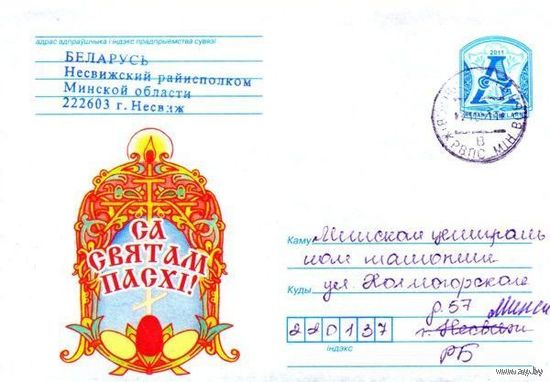 адрас адпраўшчыка і індэкс прадпрыемства сувязі
БЕЛАРУСЬ
Несвижский райисполком
Минской области
222603 г. Несвиж
2011
А
BELARUS
В
РВПС МІН
СА
СВЯТАМ
ПАСХІ!
Каму Минская централь
ная таможня
Куды ул.
д. 57 Минск
220137 г. Несвиж
індэкс РБ
www.ay.by